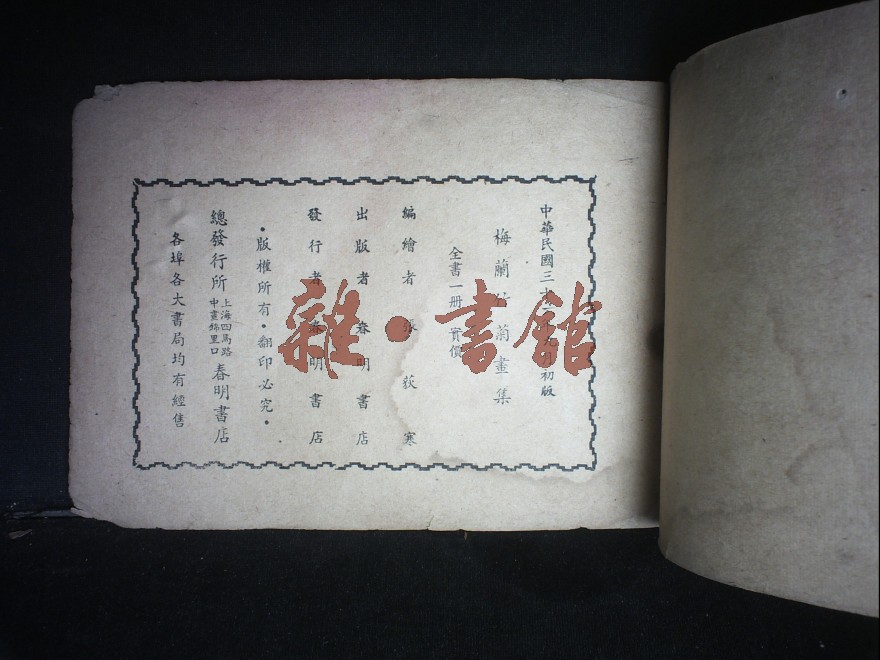 中華民國三十 九月初版
梅蘭竹菊畫集
全書一册 實價
編繪者 張荻寒
出版者 春明書店
發行者 春明書店
•版權所有•翻印必究•
總發行所 上海四馬路 中畫錦里口 春明書店
各埠各大書局均有經售
雜•書館